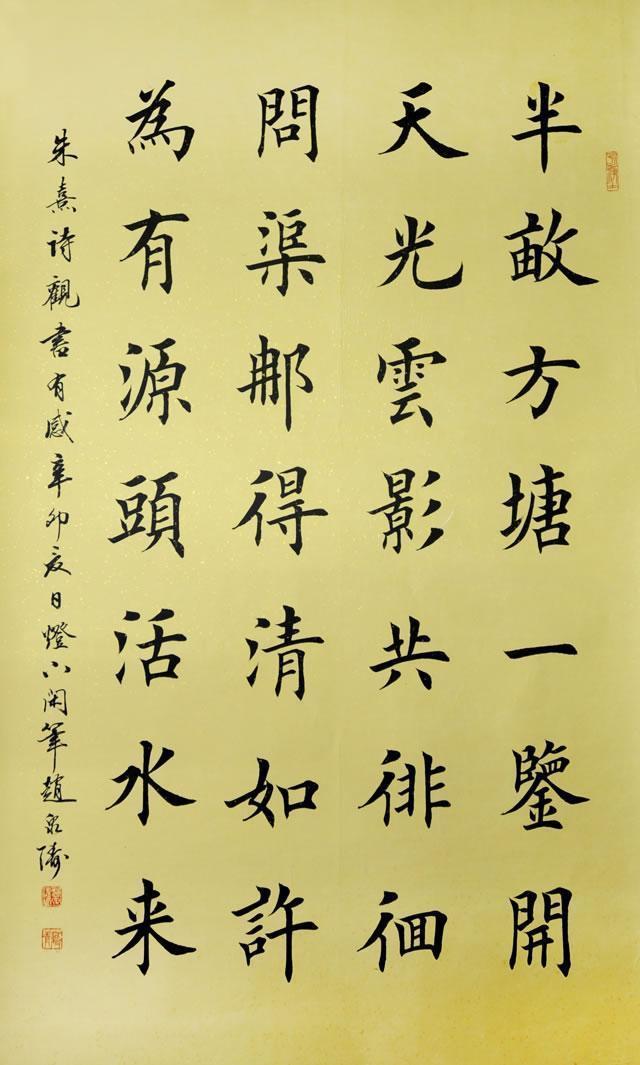 半畝方塘一鑒開
天光雲影共徘徊
問渠那得清如許
為有源頭活水来
朱熹诗觀書有感辛卯夏日燈下閑筆趙